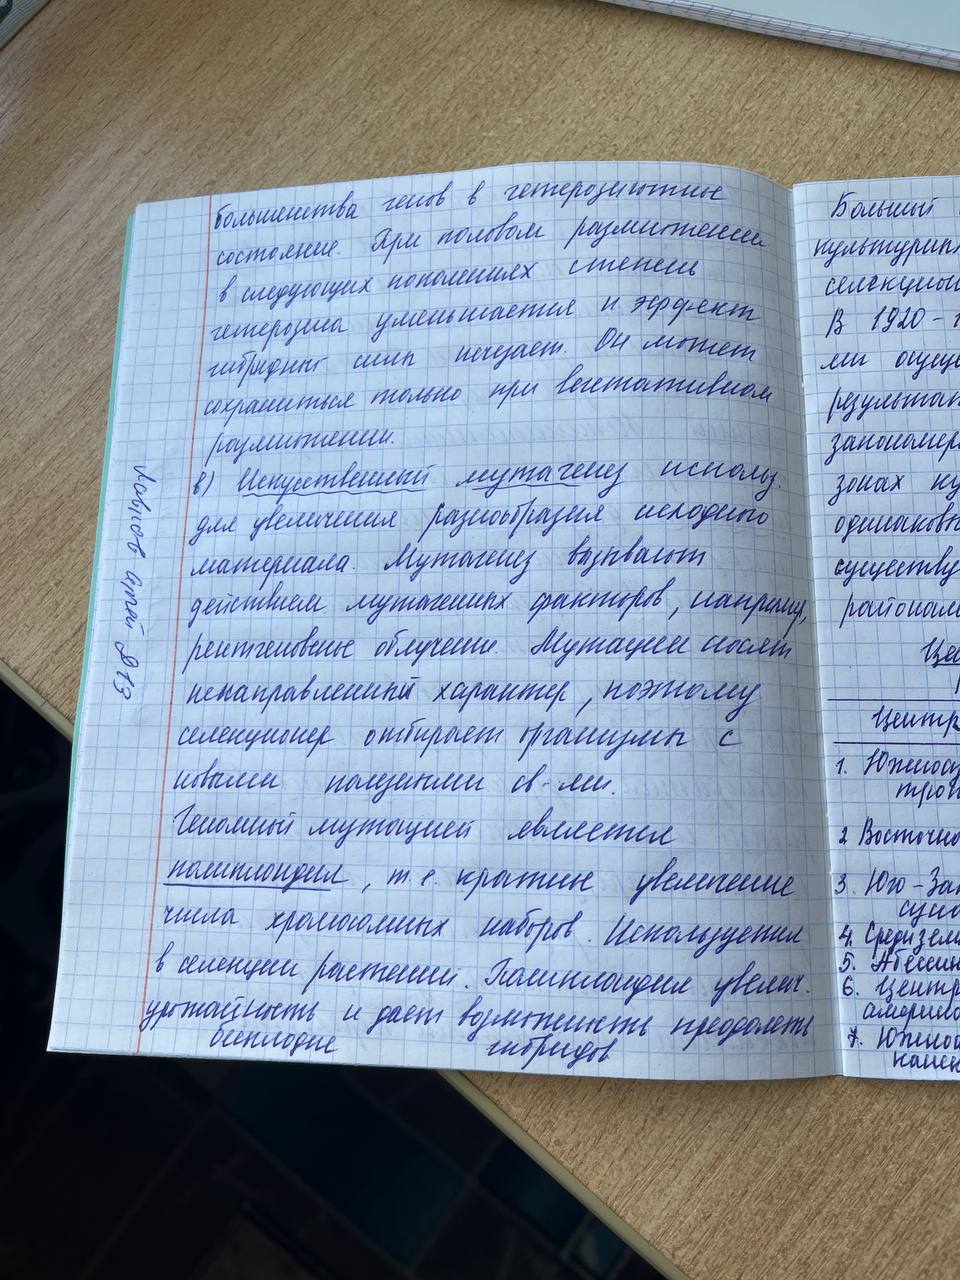 большинства генов в гетерозиготное
состояние. При половом размножении
в следующих поколениях степень
гетерозиса уменьшается и эффект
гибридной силы исчезает. Он может
сохраниться только при вегетативном
размножении.
в) Искусственный мутагенез использ.
для увеличения разнообразия исходного
материала. Мутагенез вызывают
действием мутагенных факторов, например,
рентгеновское облучение. Мутации носят
ненаправленный характер, поэтому
селекционер отбирает организмы с
новыми полезными св-ми.
Геномной мутацией является
полиплоидия, т.е. кратное увеличение
числа хромосомных наборов. Используется
в селекции растений. Полиплоидия увелич.
урожайность и дает возможность преодолеть
бесплодие гибридов
Больший
культурных
селекцион
В 1920-
ми осуще
результат
закономер
зонах ку
одинаковы
существу
районам
Це
Центр
1. Южноаз
троп
2 Восточно
3. Юго-Зап
4. Средизем
5. Абессин
6. Центр
америк
7. Южноа